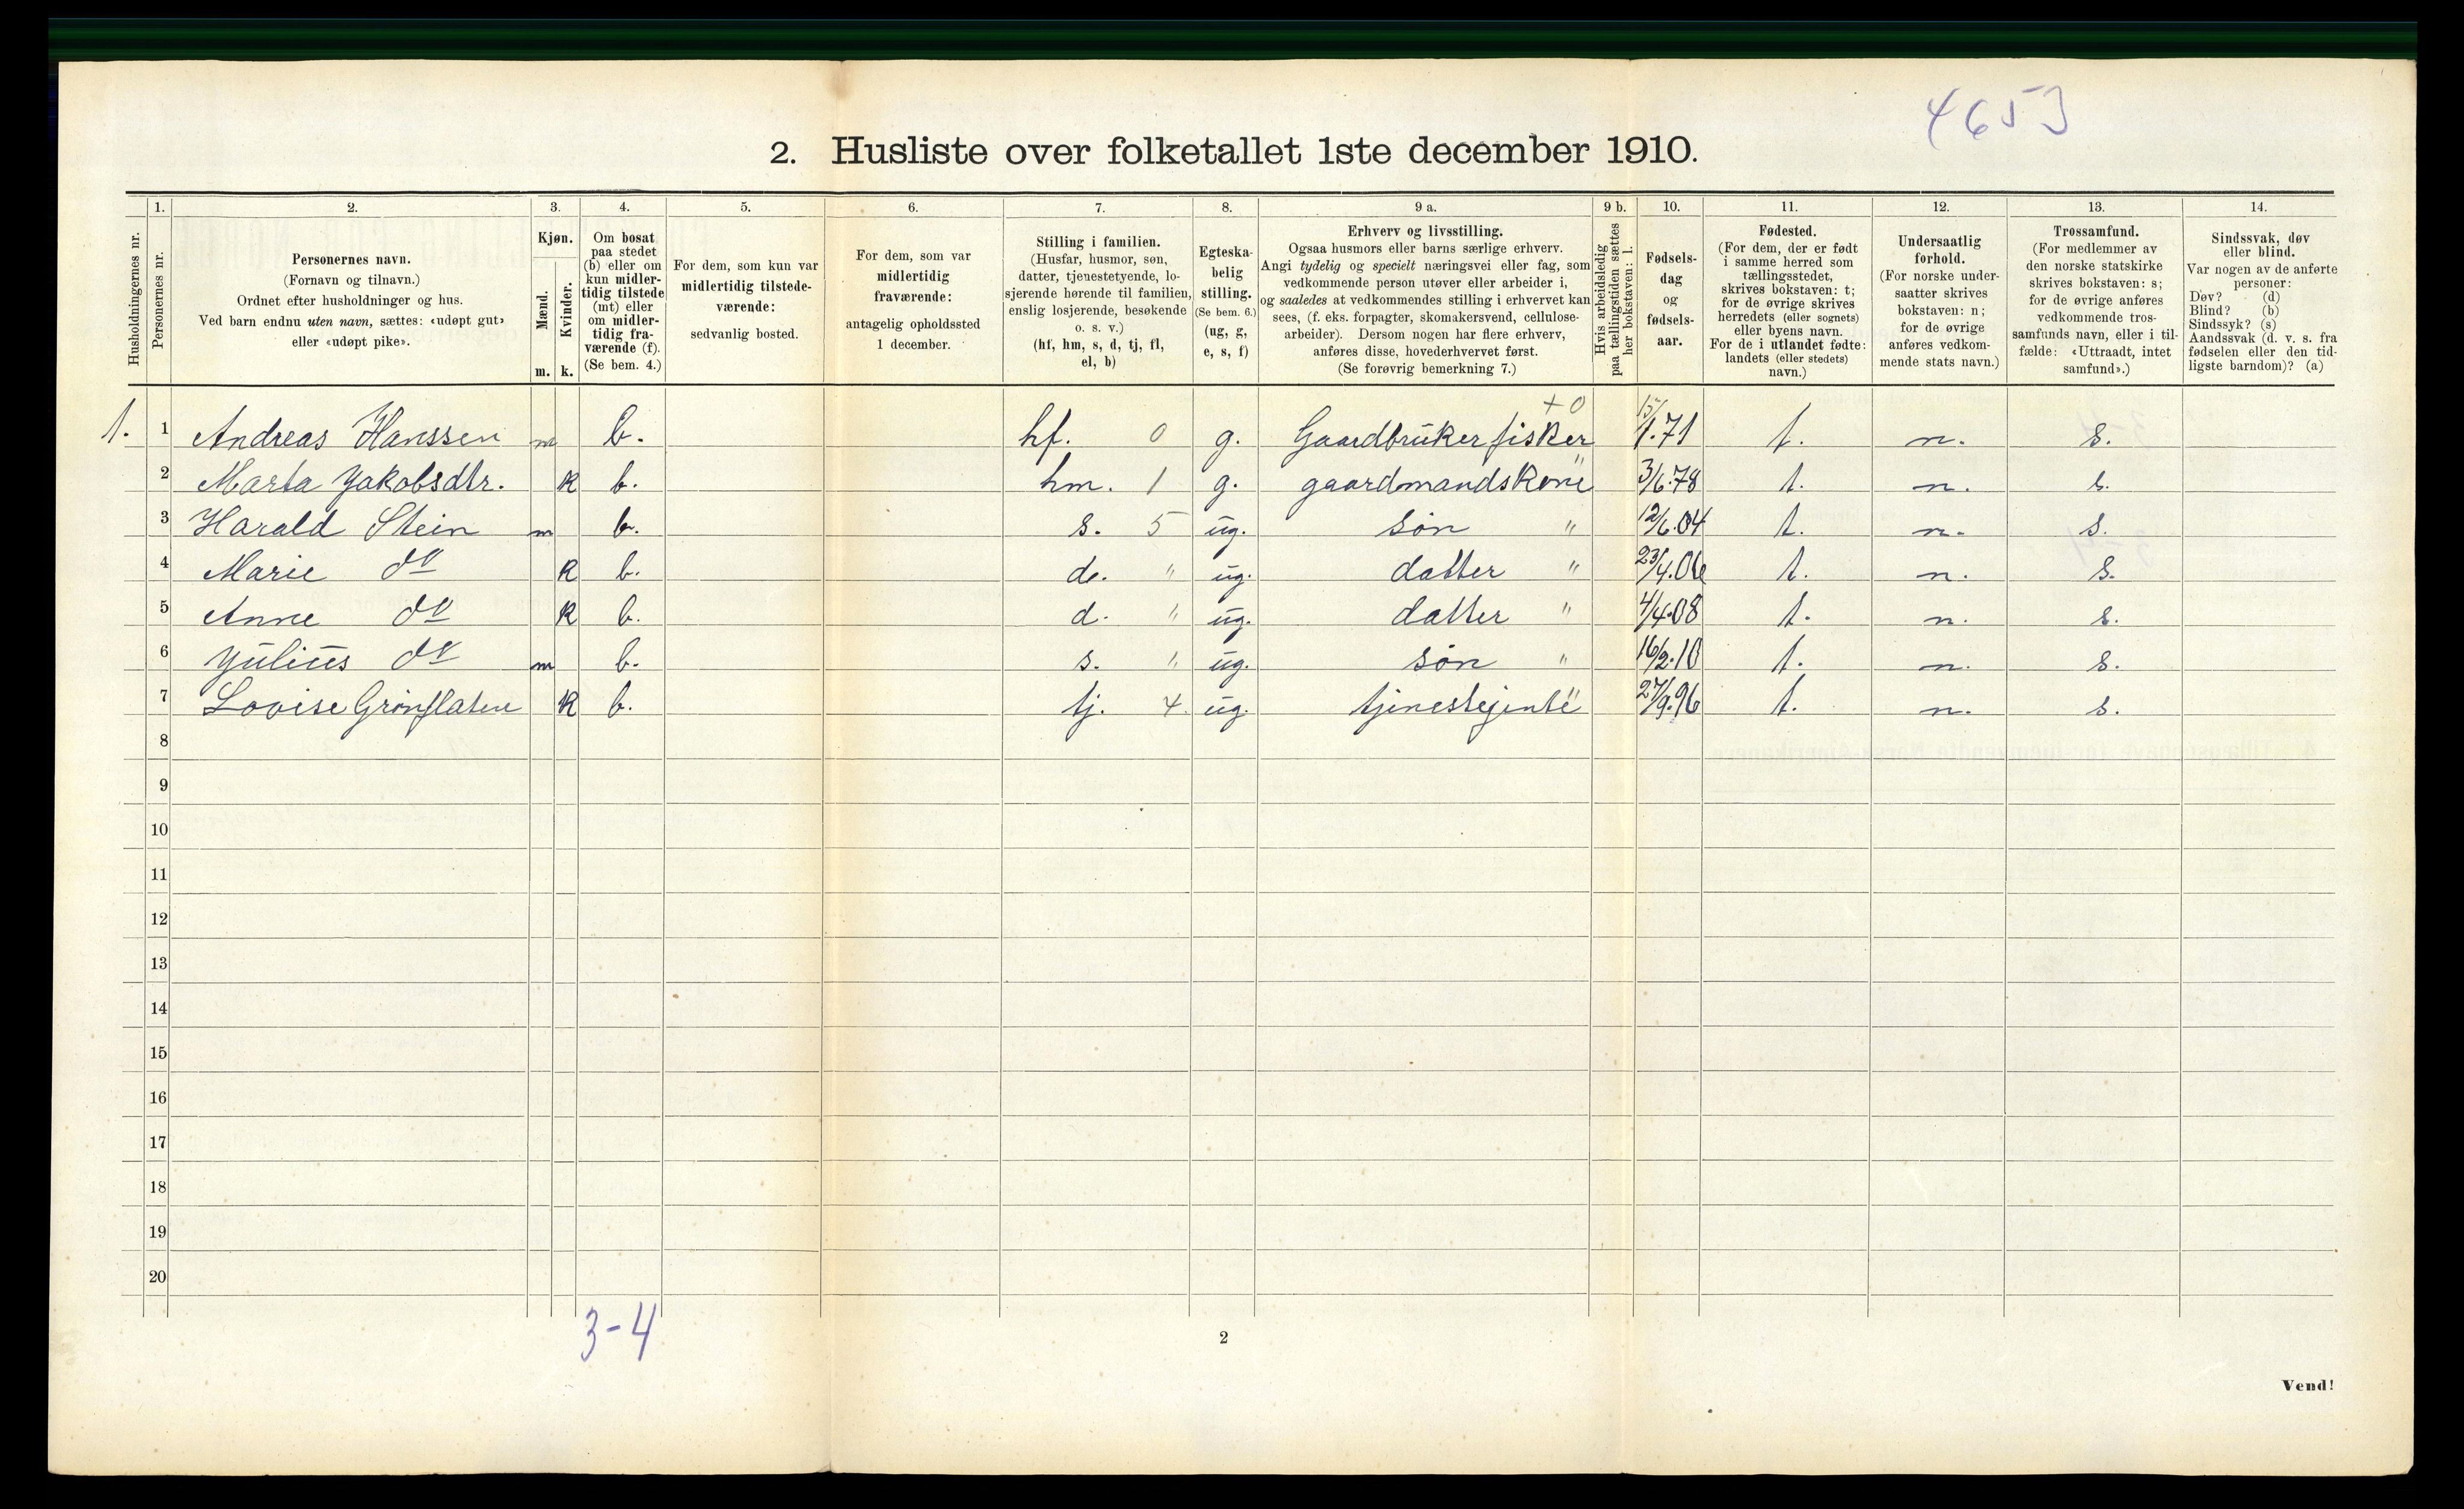 4653
2. Husliste over folketallet 1ste december 1910.
Husholdningernes nr.
1.
Personernes nr.
2.
Personernes navn.
(Fornavn og tilnavn.)
Ordnet efter husholdninger og hus.
Ved barn endnu uten navn, sættes: «udøpt gut»
eller «udøpt pike».
3.
Kjøn.
Mænd.
Kvinder.
m. k.
4.
Om bosat
paa stedet
(b) eller om
kun midler-
tidig tilstede
(mt) eller
om midler-
tidig fra-
værende (f).
(Se bem. 4.)
5.
For dem, som kun var
midlertidig tilstede-
værende:
sedvanlig bosted.
6.
For dem, som var
midlertidig
fraværende:
antagelig opholdssted
1 december.
7.
Stilling i familien.
(Husfar, husmor, søn,
datter, tjenestetyende, lo-
sjerende hørende til familien,
enslig losjerende, besøkende
o. s. v.)
(hf, hm, s, d, tj, fl,
el, b)
8.
Egteska-
belig
stilling.
(Se bem. 6.)
(ug, g,
e, s, f)
9 a.
Erhverv og livsstilling.
Ogsaa husmors eller barns særlige erhverv.
Angi tydelig og specielt næringsvei eller fag, som
vedkommende person utøver eller arbeider i,
og saaledes at vedkommendes stilling i erhvervet kan
sees, (f. eks. forpagter, skomakersvend, cellulose-
arbeider). Dersom nogen har flere erhverv,
anføres disse, hovederhvervet først.
(Se forøvrig bemerkning 7.)
9 b.
Hvis arbeidsledig
paa tællingstiden sættes
her bokstaven: l.
10.
Fødsels-
dag
og
fødsels-
aar.
11.
Fødested.
(For dem, der er født
i samme herred som
tællingsstedet,
skrives bokstaven: t;
for de øvrige skrives
herredets (eller sognets)
eller byens navn.
For de i utlandet fødte:
landets (eller stedets)
navn.)
12.
Undersaatlig
forhold.
(For norske under-
saatter skrives
bokstaven: n;
for de øvrige
anføres vedkom-
mende stats navn.)
13.
Trossamfund.
(For medlemmer av
den norske statskirke
skrives bokstaven: s;
for de øvrige anføres
vedkommende tros-
samfunds navn, eller i til-
fælde: «Uttraadt, intet
samfund».)
14.
Sindssvak, døv
eller blind.
Var nogen av de anførte
personer:
Døv? (d)
Blind? (b)
Sindssyk? (s)
Aandssvak (d. v. s. fra
fødselen eller den tid-
ligste barndom)? (a)
+ 0
1. 1 Andreas Hanssen m b. hf. 0 g. Gaardbruker fisker 15/1.71 t. n. s.
2 Marta Jakobsdtr. k b. hm. 1 g. gaardmandskone " 3/6.78 t. n. s.
3 Harald Stein m b. s. 5 ug. søn " 12/6.04 t. n. s.
4 Marie do k b. d. " ug. datter " 23/4.06 t. n. s.
5 Anne do k b. d. " ug. datter " 4/4.08 t. n. s.
6 Julius do m b. s. " ug. søn " 16/2.10 t. n. s.
7 Lovise Grønflaten k b. tj. 4 ug. tjenestejente " 27/9.96 t. n. s.
8
9
10
11
12
13
14
15
16
17
18
19
20
3-4
2
Vend!